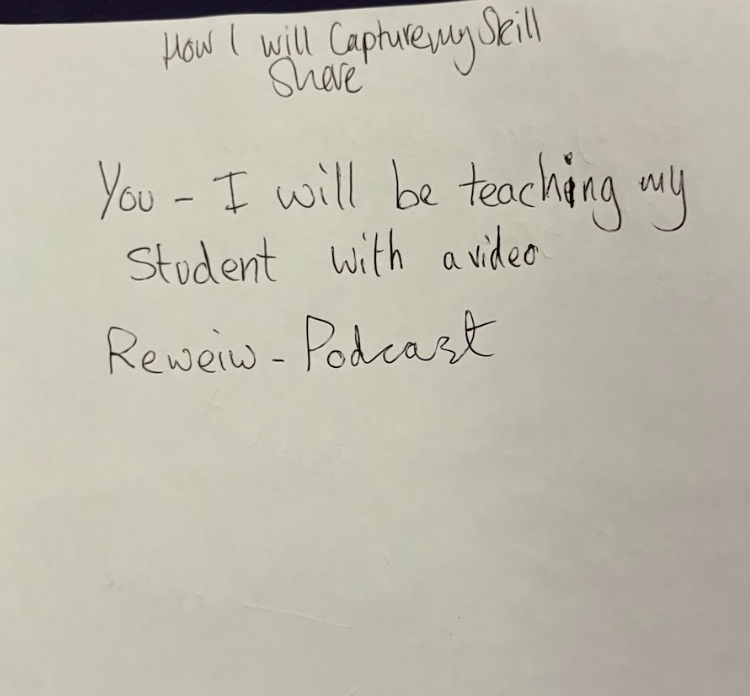 How I will Capture my Skill
Share
You - I will be teaching my
Student with a video
Reweiw - Podcast